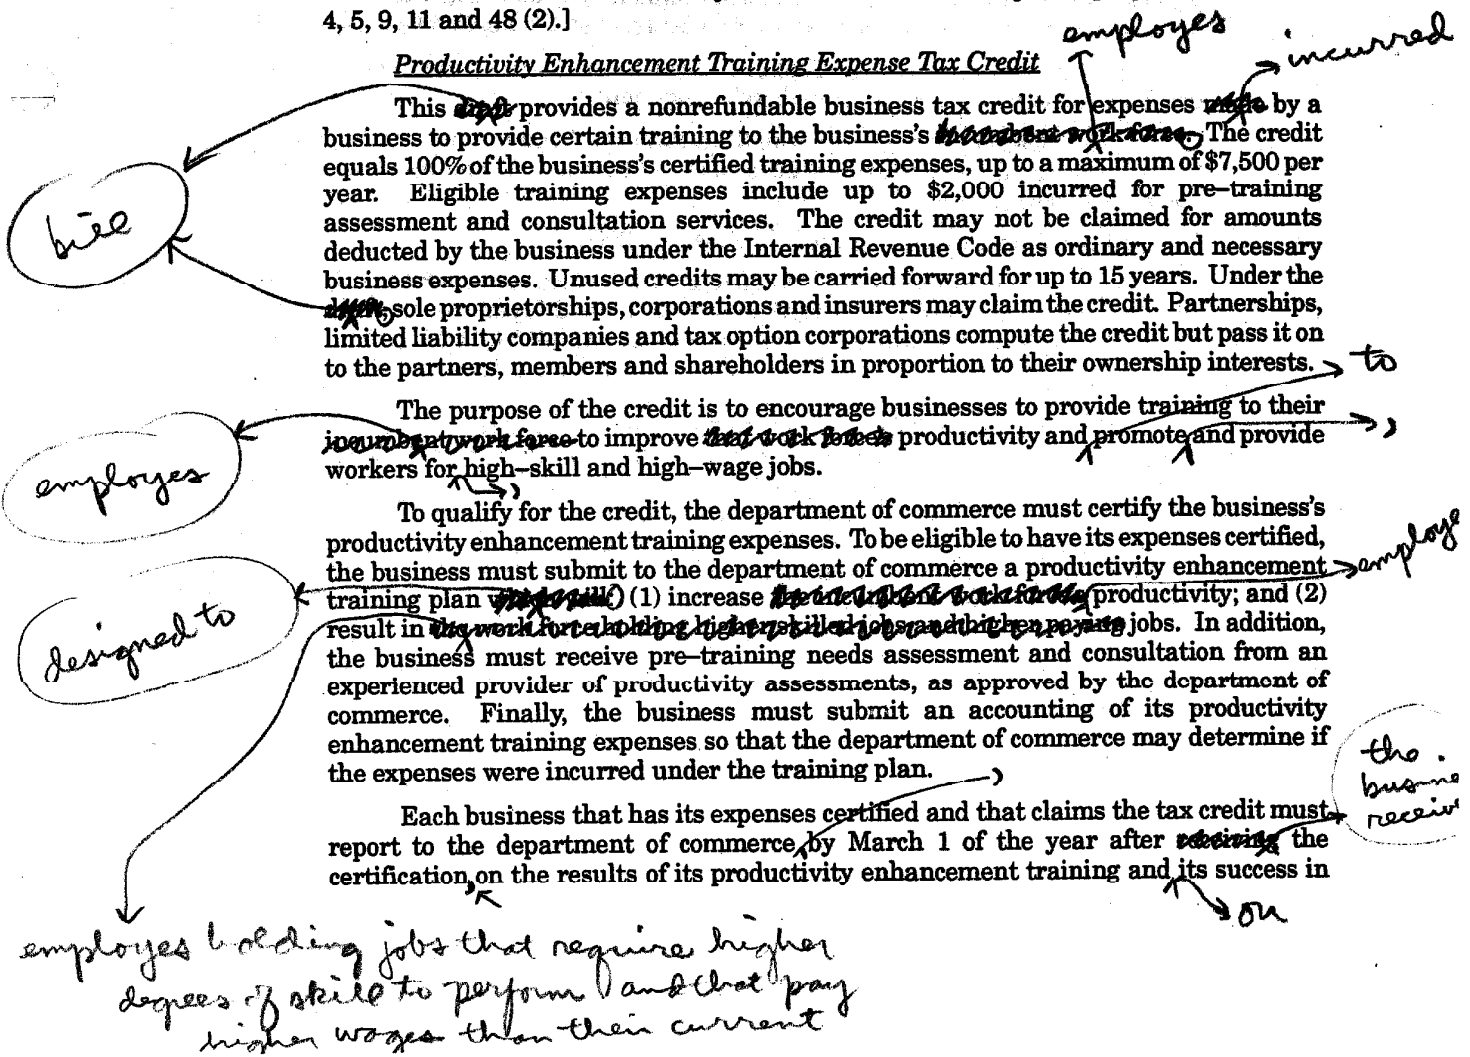 4, 5, 9, 11 and 48 (2).]
employes
incurred
Productivity Enhancement Training Expense Tax Credit
This draft provides a nonrefundable business tax credit for expenses made by a
business to provide certain training to the business's incumbent work force. The credit
equals 100% of the business's certified training expenses, up to a maximum of $7,500 per
year. Eligible training expenses include up to $2,000 incurred for pre–training
assessment and consultation services. The credit may not be claimed for amounts
bill
deducted by the business under the Internal Revenue Code as ordinary and necessary
business expenses. Unused credits may be carried forward for up to 15 years. Under the
sole proprietorships, corporations and insurers may claim the credit. Partnerships,
limited liability companies and tax option corporations compute the credit but pass it on
to the partners, members and shareholders in proportion to their ownership interests.
to
The purpose of the credit is to encourage businesses to provide training to their
incumbent work force to improve that work force's productivity and promote and provide
,
workers for high–skill and high–wage jobs.
employes
,
To qualify for the credit, the department of commerce must certify the business's
productivity enhancement training expenses. To be eligible to have its expenses certified,
the business must submit to the department of commerce a productivity enhancement
employe
training plan (1) increase the incumbent work force's productivity; and (2)
designed to
result in the work force holding higher skilled jobs and higher paying jobs. In addition,
the business must receive pre–training needs assessment and consultation from an
experienced provider of productivity assessments, as approved by the department of
commerce. Finally, the business must submit an accounting of its productivity
enhancement training expenses so that the department of commerce may determine if
the expenses were incurred under the training plan.
,
the
busine
receiv
Each business that has its expenses certified and that claims the tax credit must
report to the department of commerce by March 1 of the year after receiving the
certification, on the results of its productivity enhancement training and its success in
on
employes holding jobs that require higher
degrees of skill to perform and that pay
higher wages than their current